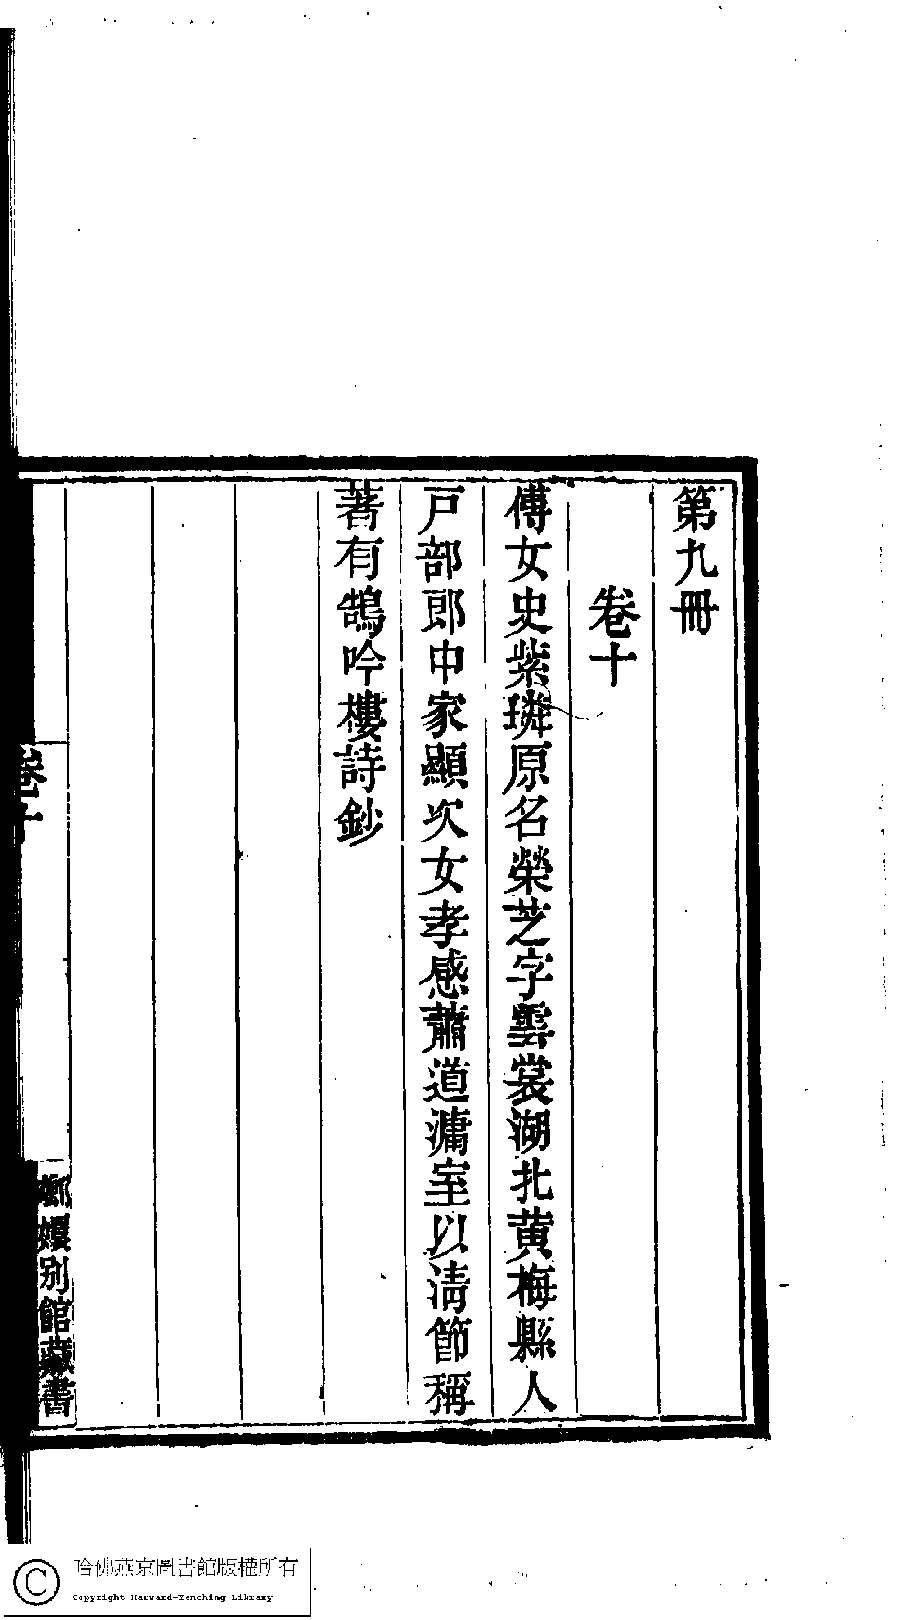 第九冊
卷十
傅女史紫璘原名榮芝字雲裳湖北黃梅縣人
戶部郎中家顯次女孝感蕭道濂室以清節稱
著有鵠吟樓詩鈔
卷十
嫏嬛別館藏書
哈佛燕京圖書館版權所有
Copyright Harvard-Yenching Library